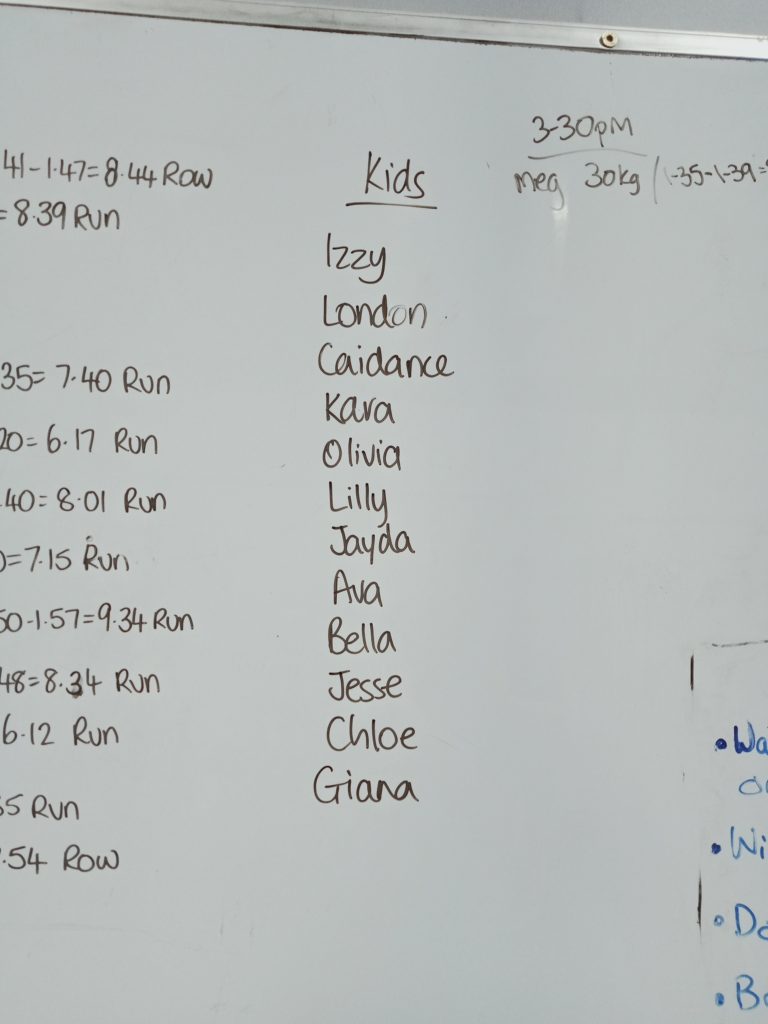 41-1.47=8.44 Row
= 8.39 Run
35= 7.40 Run
20=6.17 Run
.40=8.01 Run
)=7.15 Run
50-1.57=9.34 Run
48=8.34 Run
6.12 Run
55 Run
.54 Row
Kids
Izzy
London
Caidance
Kara
Olivia
Lilly
Jayda
Ava
Bella
Jesse
Chloe
Giana
3-30pm
meg 30kg /1-35-1-39=
• Wa
• Wi
• Do